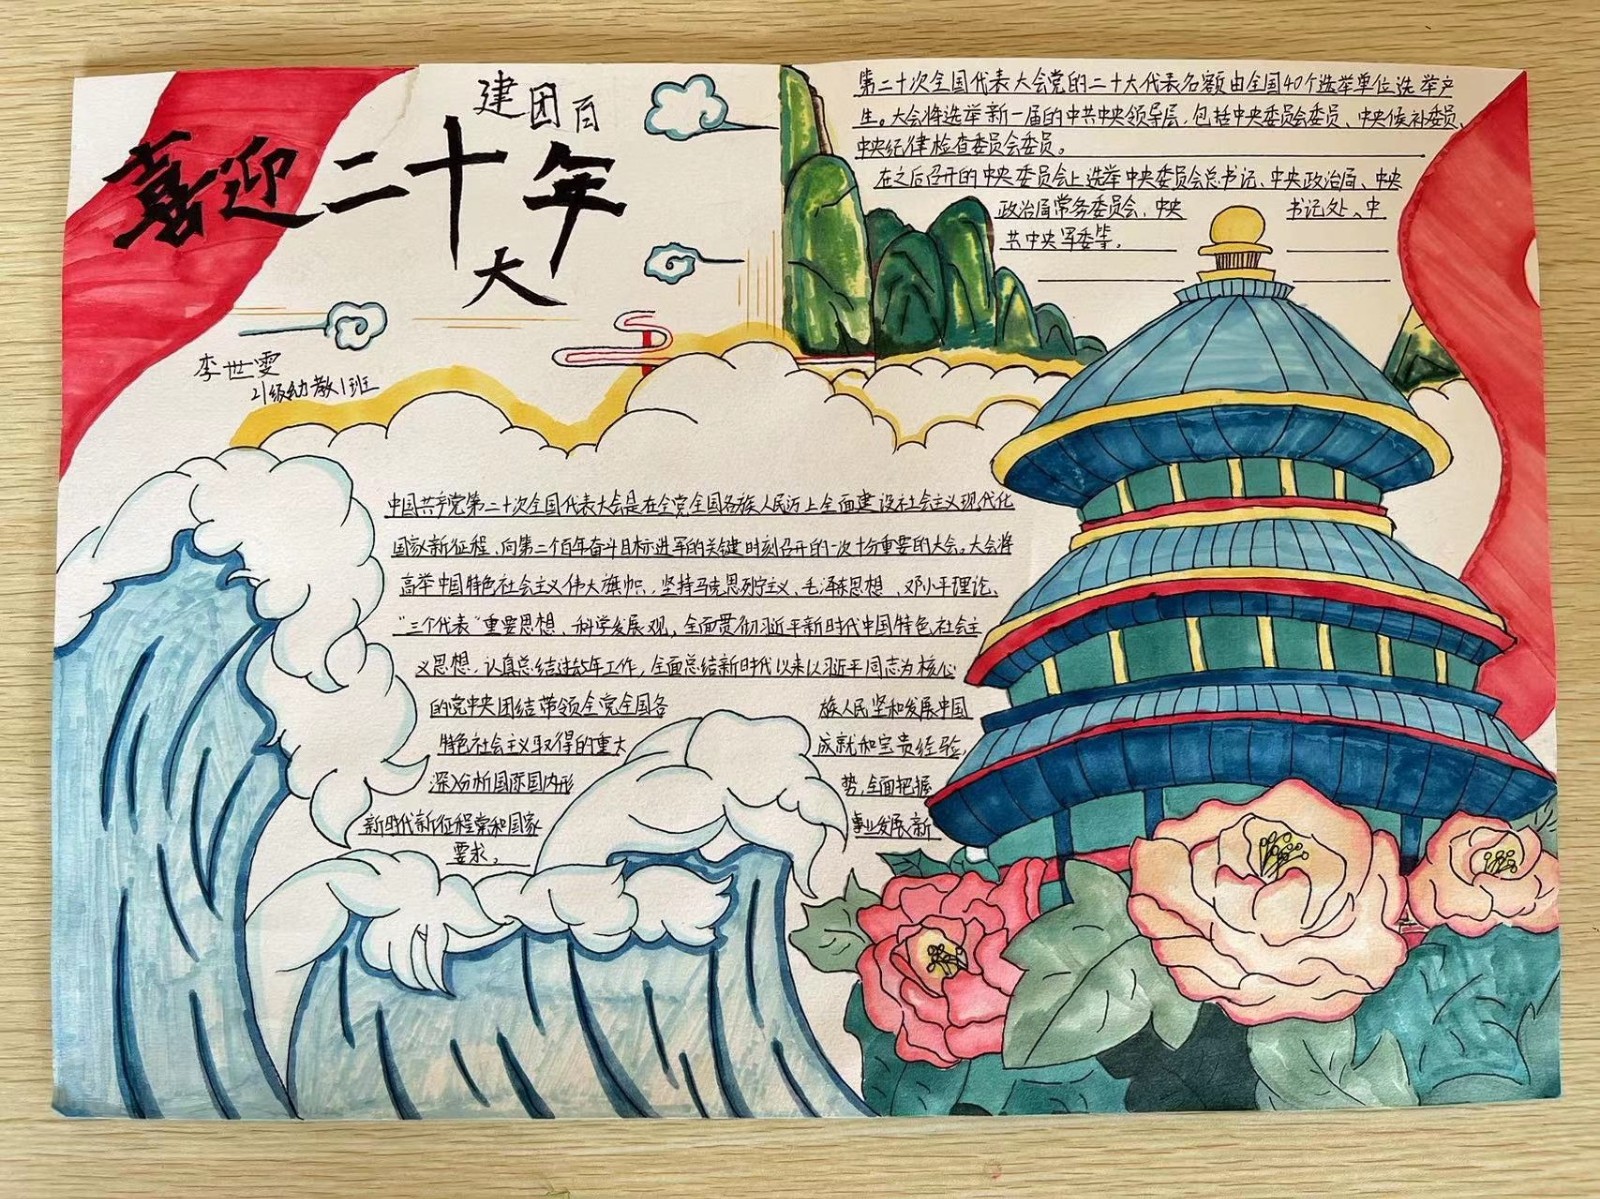 建团百年
喜迎二十大
李世雯
21级幼教1班
第二十次全国代表大会党的二十大代表名额由全国40个选举单位选举产
生。大会将选举新一届的中共中央领导层,包括中央委员会委员、中央候补委员、
中央纪律检查委员会委员。
在之后召开的中央委员会上选举中央委员会总书记、中央政治局、中央
政治局常务委员会,中央书记处、中
共中央军委等。
中国共产党第二十次全国代表大会是在全党全国各族人民迈上全面建设社会主义现代化
国家新征程、向第二个百年奋斗目标进军的关键时刻召开的一次十分重要的大会。大会将
高举中国特色社会主义伟大旗帜,坚持马克思列宁主义、毛泽东思想、邓小平理论、
“三个代表”重要思想、科学发展观,全面贯彻习近平新时代中国特色社会主
义思想,认真总结过去5年工作,全面总结新时代以来以习近平同志为核心
的党中央团结带领全党全国各族人民坚和发展中国
特色社会主义取得的重大成就和宝贵经验,
深入分析国际国内形势,全面把握
新时代新征程党和国家事业发展新
要求。